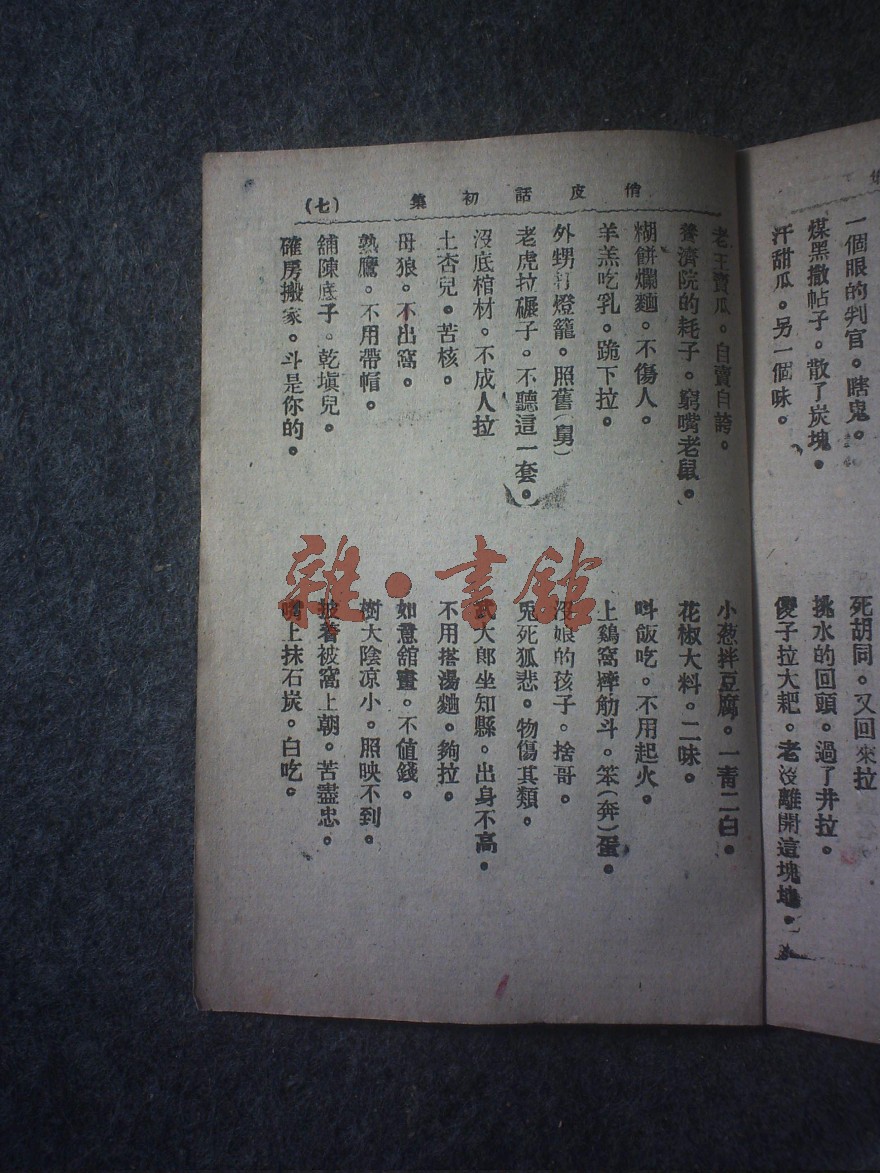 一個眼的判官。瞎鬼。
煤黑撒帖子。散了炭塊。
汗甜瓜。另一個味。
死胡同。又回來拉
挑水的回頭。過了井拉。
傻子拉大耙。老沒離開這塊地。
俏皮話初集
(七)
老王賣瓜。自賣自誇。
養濟院的耗子。窮嘴老鼠。
糊餅爛麵。不傷人。
羊羔吃乳。跪下拉。
外甥打燈籠。照舊(舅)
老虎拉碾子。不聽這一套。
沒底棺材。不成人拉
土杏兒。苦核。
母狼。不出窩。
熟鷹。不用帶帽。
舖陳底子。乾塡兒。
確房搬家。斗是你的。
小葱拌豆腐。一青二白。
花椒大料。二味。
呌飯吃。不用起火。
上鷄窩摔觔斗。笨(奔)蛋。
沒娘的孩子。捨哥。
兎死狐悲。物傷其類。
武大郎坐知縣。出身不高。
不用搭湯麵。夠拉。
如意舘畫。不値錢。
樹大陰凉小。照映不到。
披着被窩上朝。苦盡忠。
嘴上抹石炭。白吃。
雜·書館